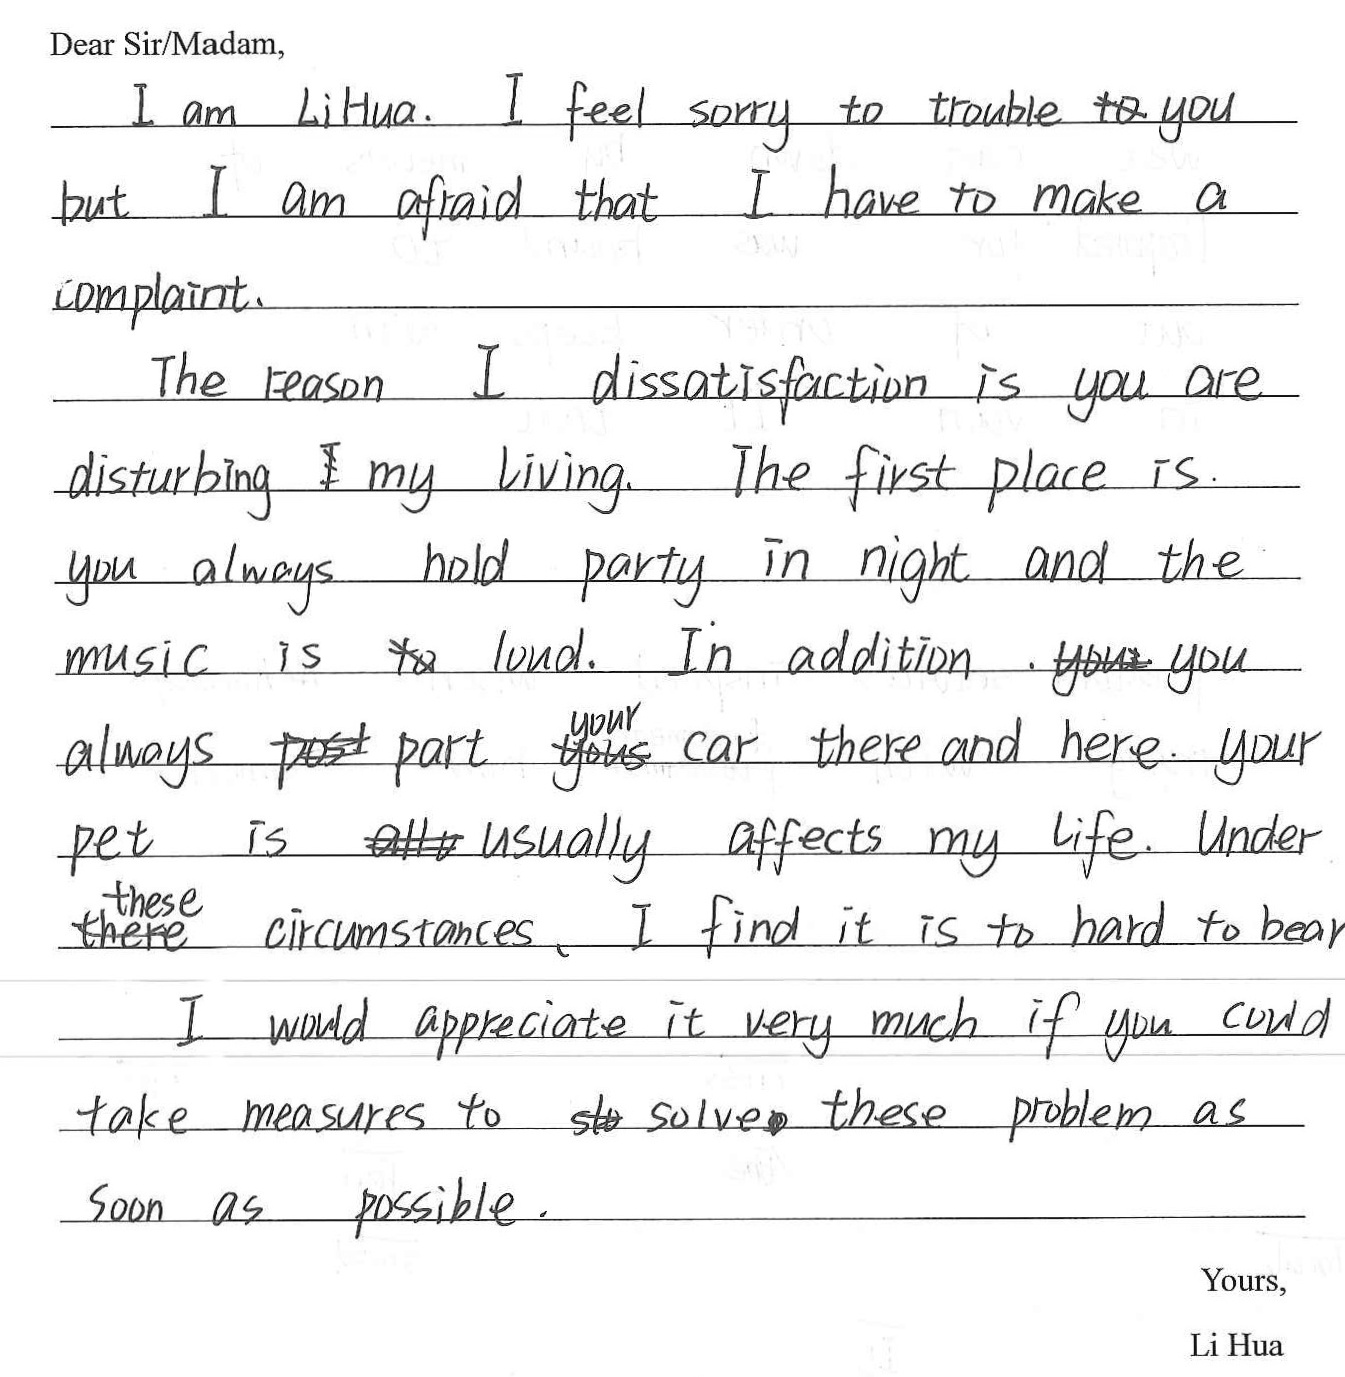 Dear Sir/Madam,
I am Li Hua. I feel sorry to trouble you
but I am afraid that I have to make a
complaint.
The reason I dissatisfaction is you are
disturbing my living. The first place is.
you always hold party in night and the
music is loud. In addition . you
always part your car there and here. your
pet is usually affects my life. Under
these circumstances, I find it is to hard to bear
I would appreciate it very much if you could
take measures to solve these problem as
soon as possible.
Yours,
Li Hua